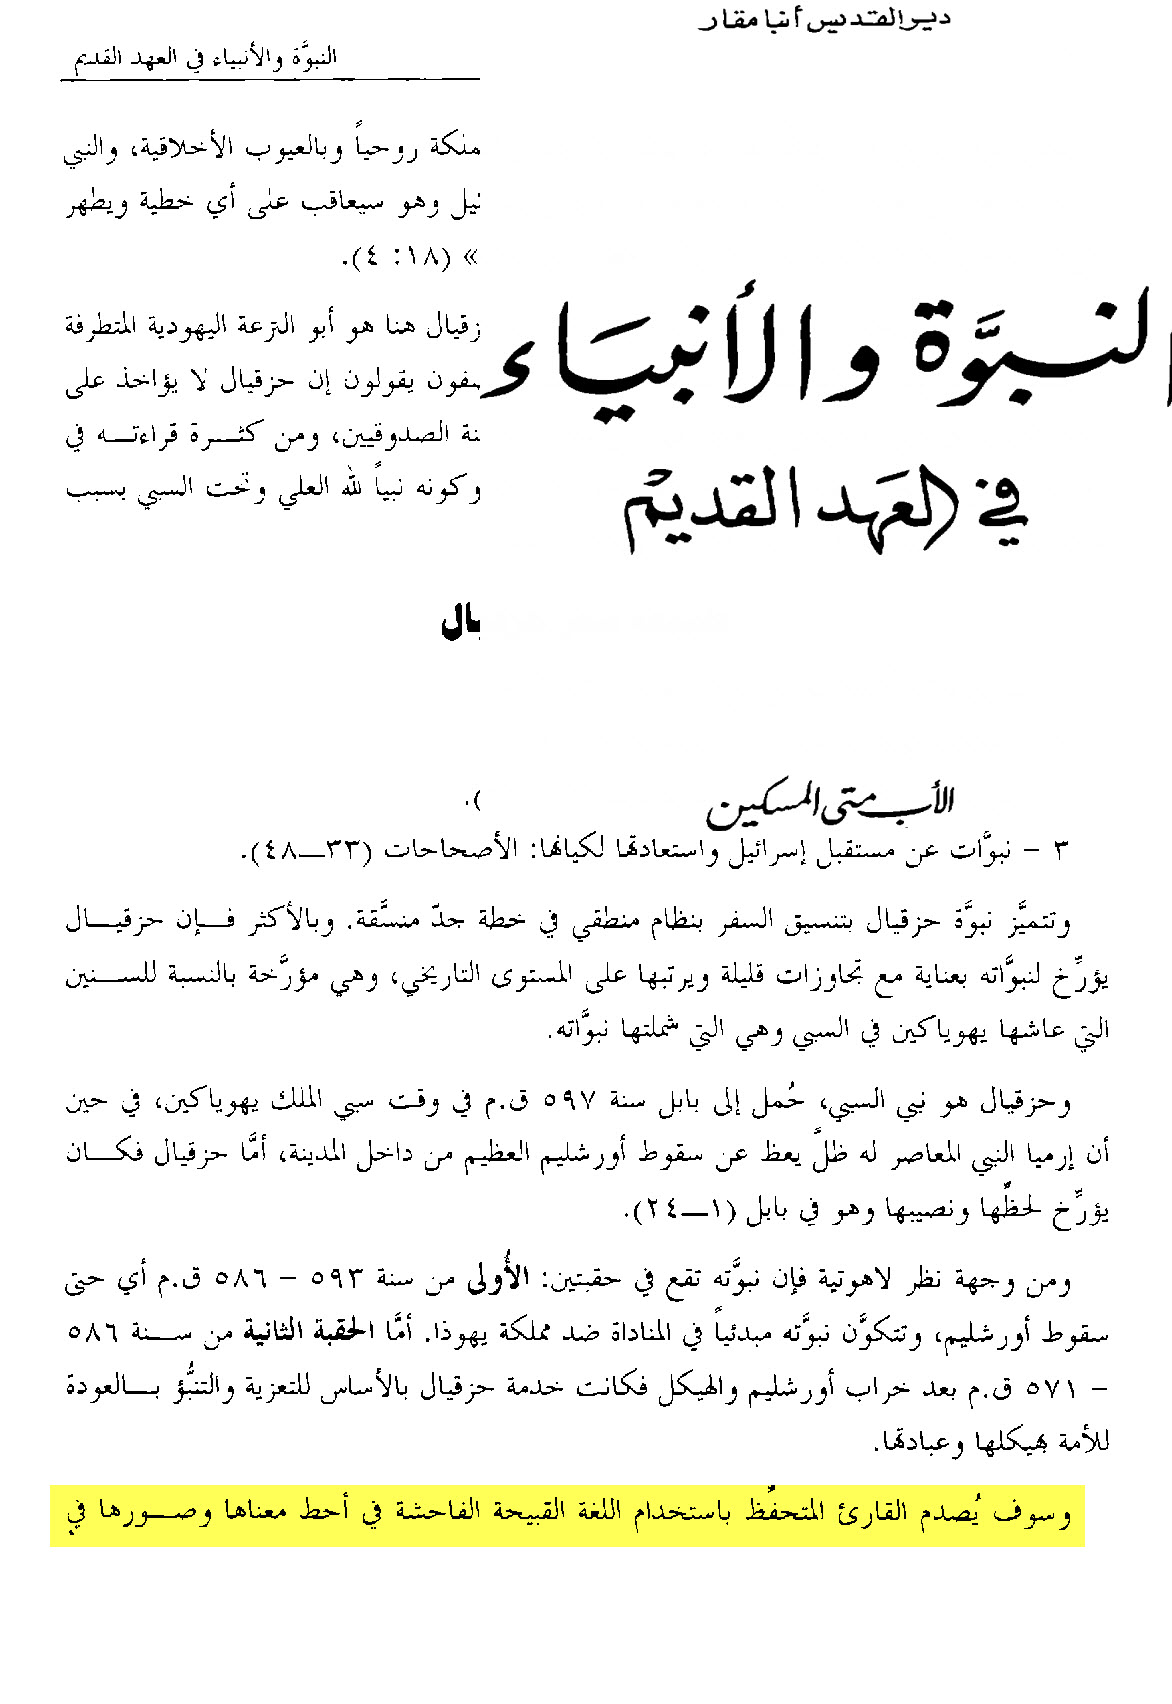 دير القديس أنبا مقار
النبوَّة والأنبياء في العهد القديم
روحياً وبالعيوب الأخلاقية، والنبي
وهو سيعاقب على أي خطية ويطهر
» (١٨: ٤).
هنا هو أبو النزعة اليهودية المتطرفة
يقولون إن حزقيال لا يؤاخذ على
الصدوقيين، ومن كثـــرة قراءتـــه في
وكونه نبياً لله العلي وتحت السبي بسبب
النبوَّة والأنبياء
في العهد القديم
الأب متى المسكين
).
٣ – نبوَّات عن مستقبل إسرائيل واستعادتها لكيانها: الأصحاحات (٣٣ــ٤٨).
وتتميَّز نبوَّة حزقيال بتنسيق السفر بنظام منطقي في خطة جدّ منسَّقة. وبالأكثر فـــإن حزقيـــال
يؤرِّخ لنبوَّاته بعناية مع تجاوزات قليلة ويرتبها على المستوى التاريخي، وهي مؤرَّخة بالنسبة للســـنين
التي عاشها يهوياكين في السبي وهي التي شملتها نبوَّاته.
وحزقيال هو نبي السبي، حُمل إلى بابل سنة ٥٩٧ ق.م في وقت سبي الملك يهوياكين، في حين
أن إرميا النبي المعاصر له ظلَّ يعظ عن سقوط أورشليم العظيم من داخل المدينة، أمَّا حزقيال فكـــان
يؤرِّخ لحظِّها ونصيبها وهو في بابل (١ــ٢٤).
ومن وجهة نظر لاهوتية فإن نبوَّته تقع في حقبتين: الأُولى من سنة ٥٩٣ – ٥٨٦ ق.م أي حتى
سقوط أورشليم، وتتكوَّن نبوَّته مبدئياً في المناداة ضد مملكة يهوذا. أمَّا الحقبة الثانية من ســـنة ٥٨٦
– ٥٧١ ق.م بعد خراب أورشليم والهيكل فكانت خدمة حزقيال بالأساس للتعزية والتنبُّؤ بـــالعودة
للأمة بهيكلها وعبادتها.
وسوف يُصدم القارئ المتحفِّظ باستخدام اللغة القبيحة الفاحشة في أحط معناها وصـــورها في